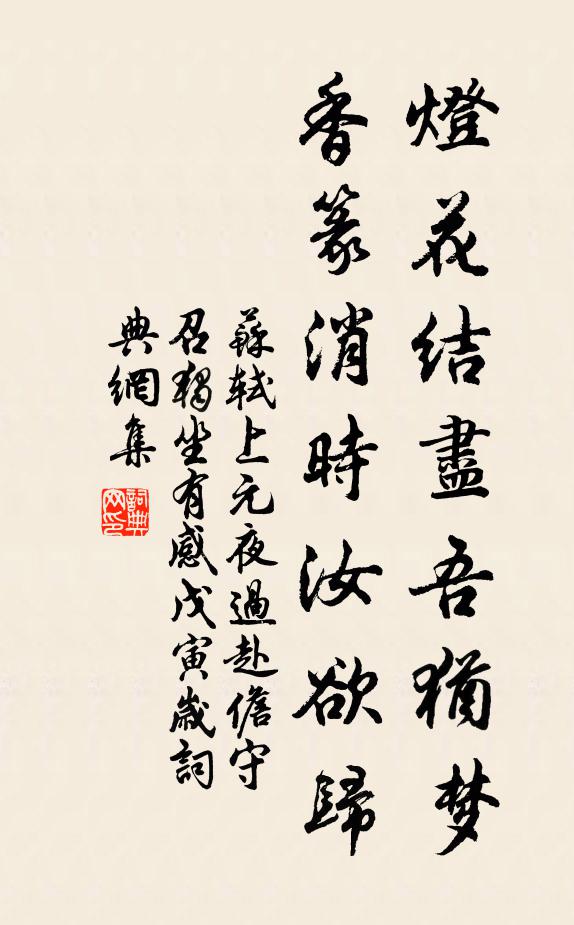 燈花結盡吾猶梦
香篆消時汝欲歸
蘇軾上元夜過赴儋守
召獨坐有感戊寅歲詞
典網集
詞典网印